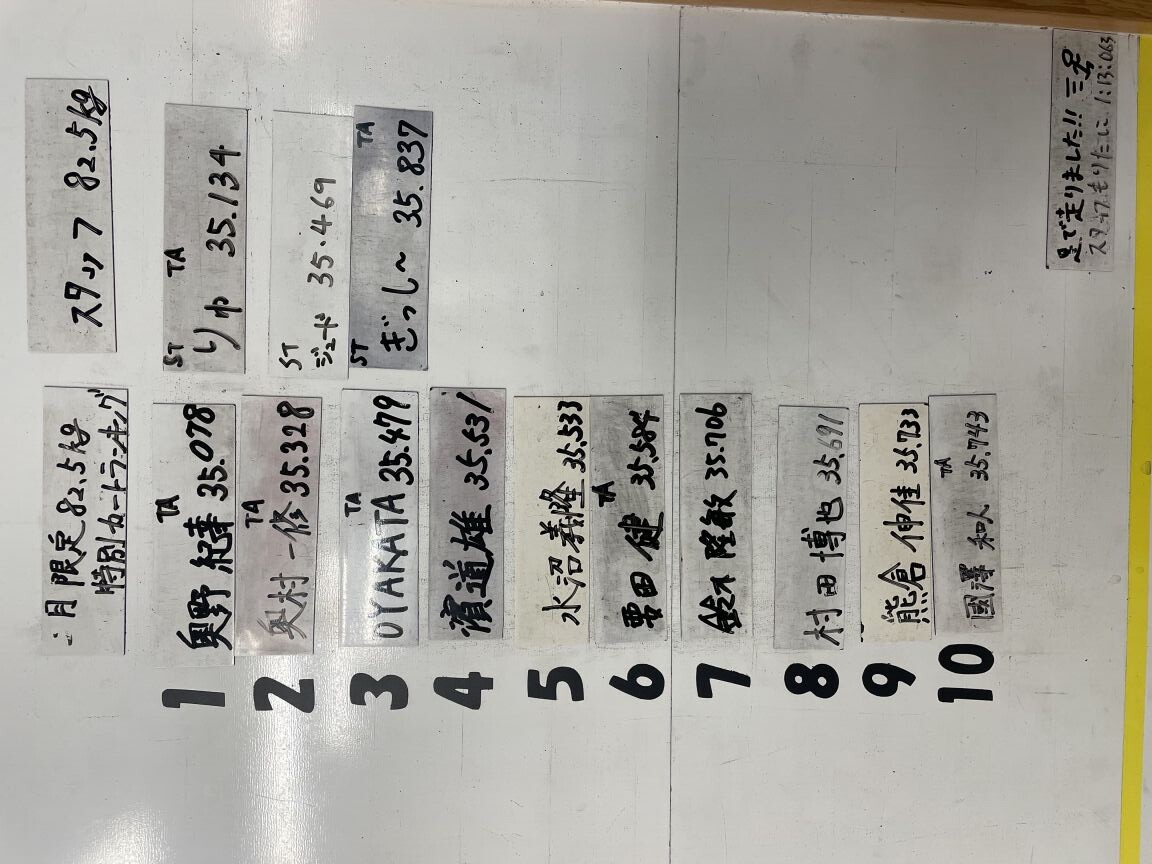 月限定82.5kg
特別カートランキング
スタッフ 82.5kg
1
TA
奥野 紀幸 35.078
2
TA
奥村 一修 35.328
3
TA
OYAKATA 35.479
4
濱道雄 35.531
5
水沼義隆 35.533
6
TA
栗田 健 35.584
7
鈴木 隆敏 35.706
8
村田 博也 35.691
9
熊倉 伸佳 35.733
10
TA
國澤 和人 35.743
ST TA
りゅ 35.134
ST
ジェード 35.469
ST TA
ぎっし〜 35.837
足で走りました!!
スタッフもりたに 1:13:063